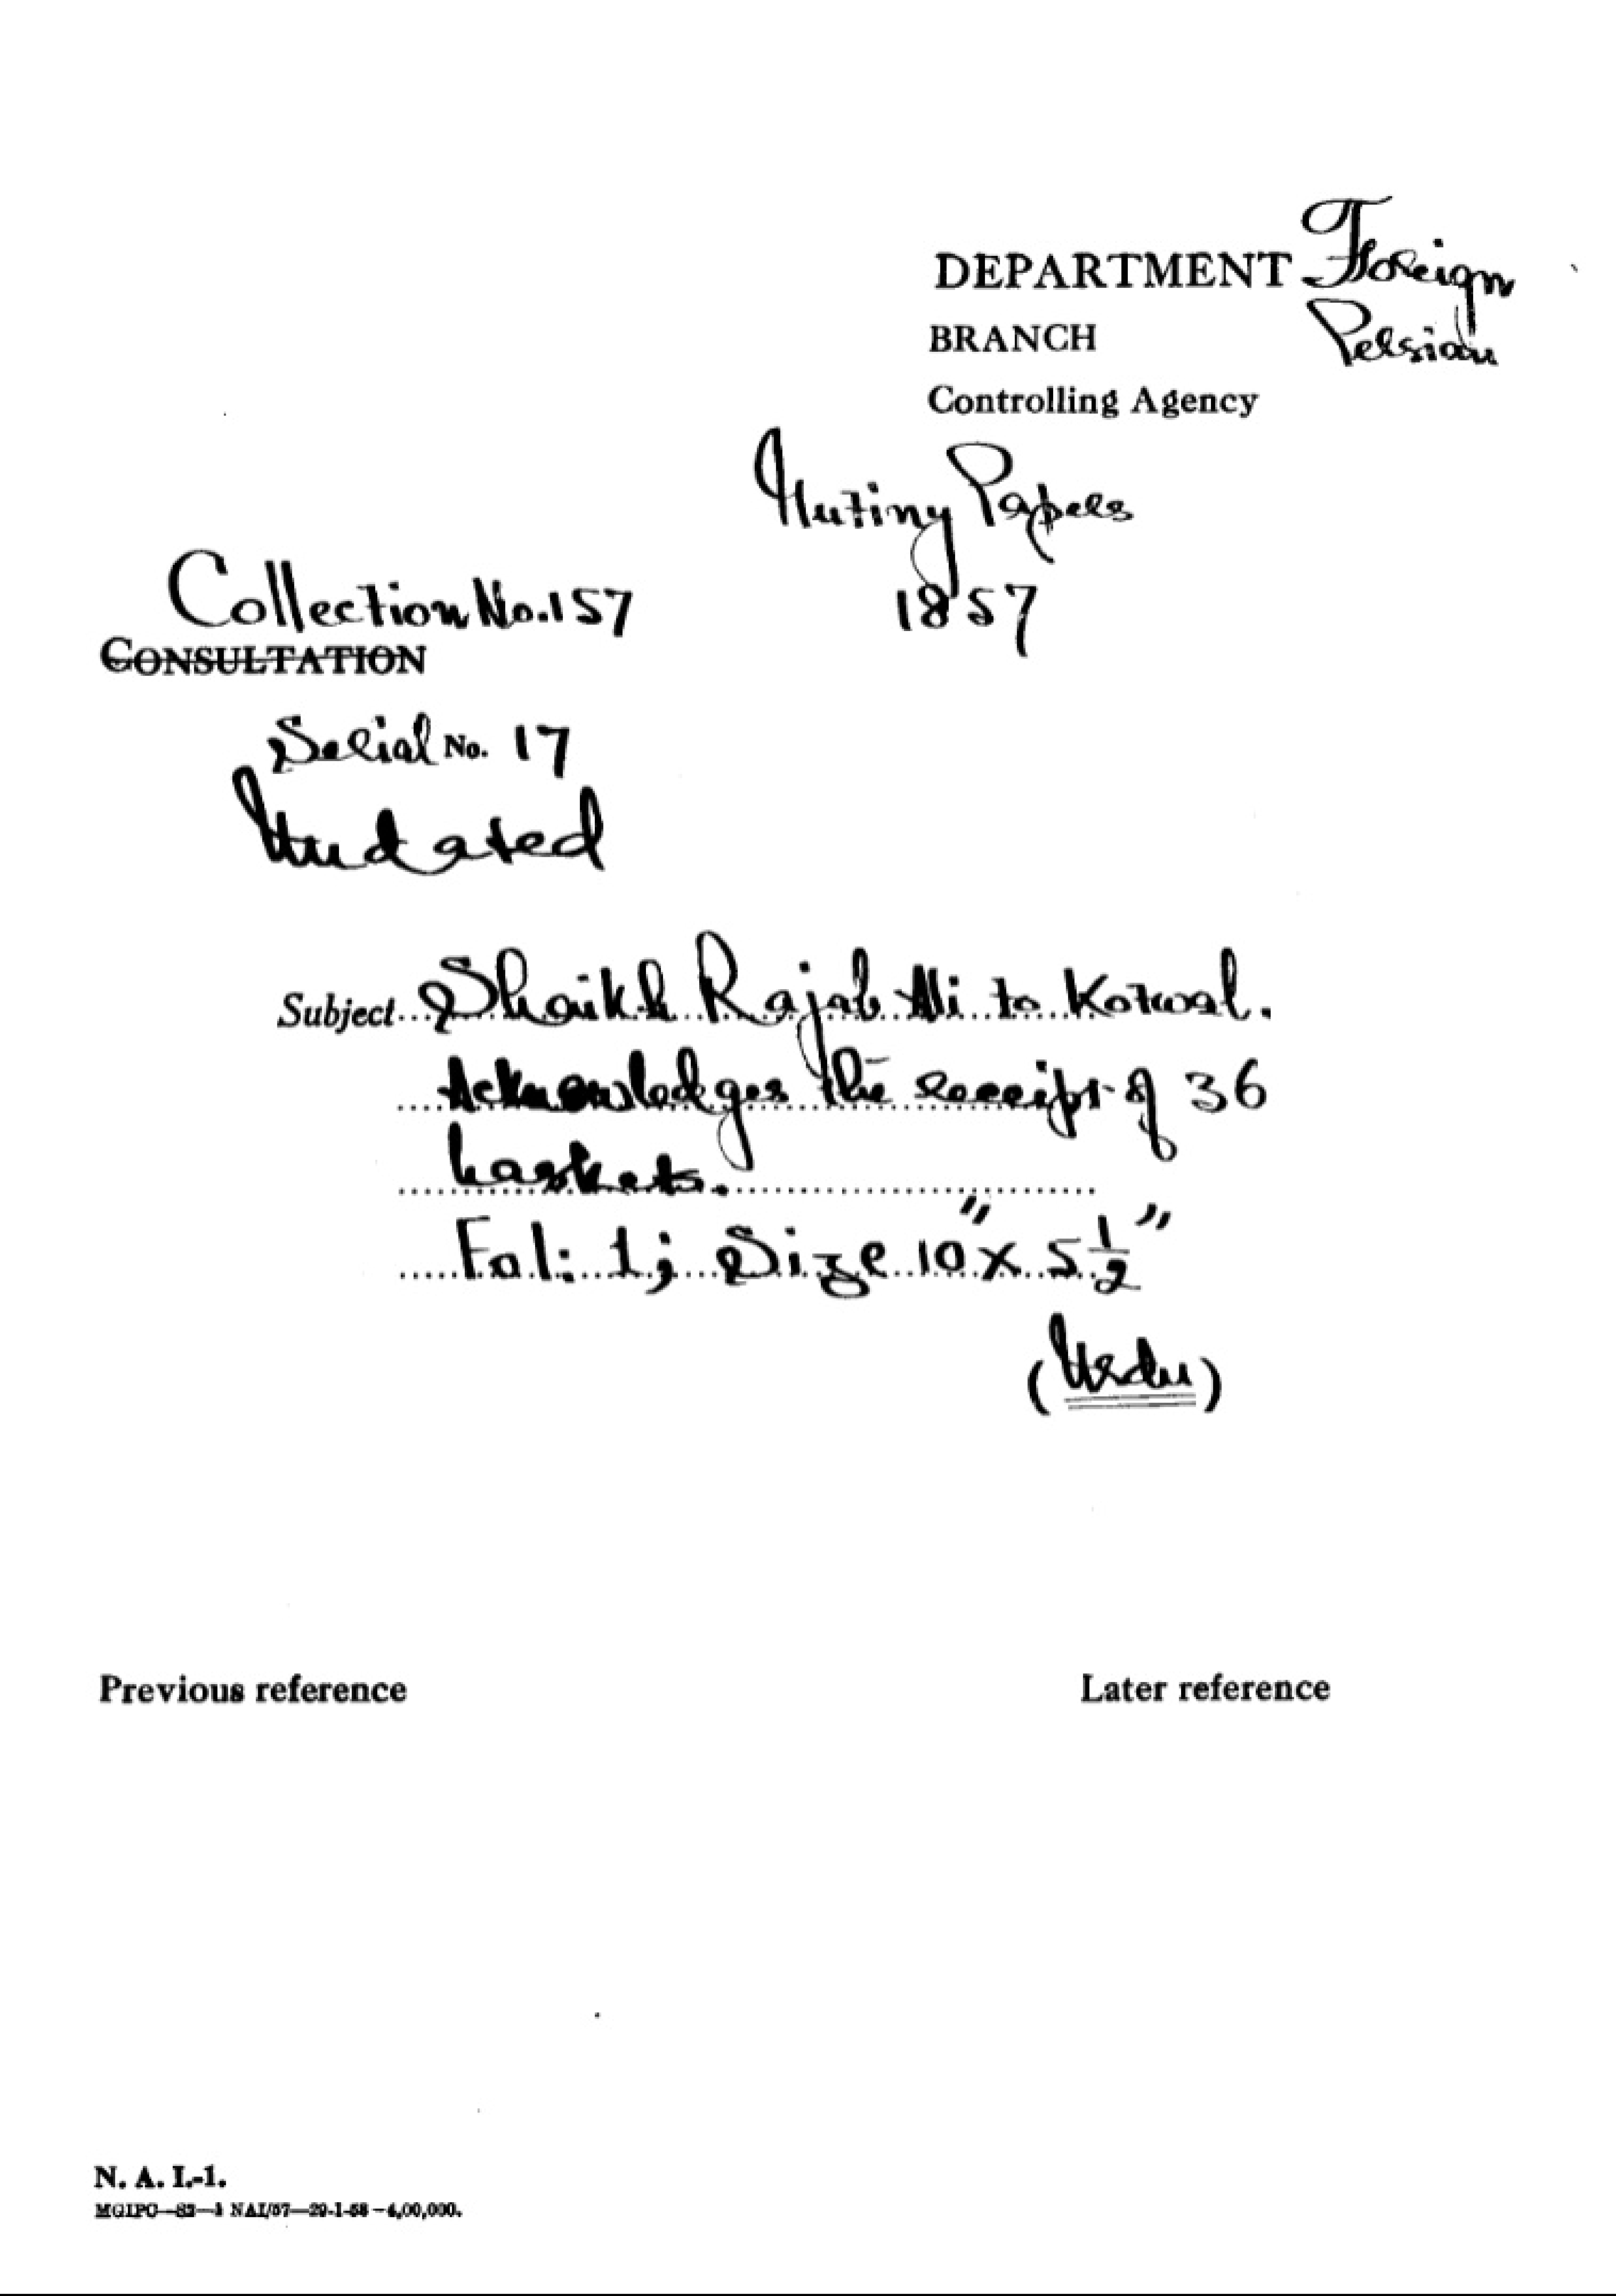 DEPARTMENT Foreign
BRANCH Persian
Controlling Agency
Mutiny Papers
1857
Collection No. 157
CONSULTATION
Serial No. 17
Undated
Subject Shaikh Rajab Ali to Kotwal.
Acknowledges the receipt of 36
baskets.
Fol: 1; Size 10" x 5 1/2"
(Urdu)
Previous reference Later reference
N. A. I.-1.
MGIPC—S2—1 NAI/57—29-1-58—4,00,000.